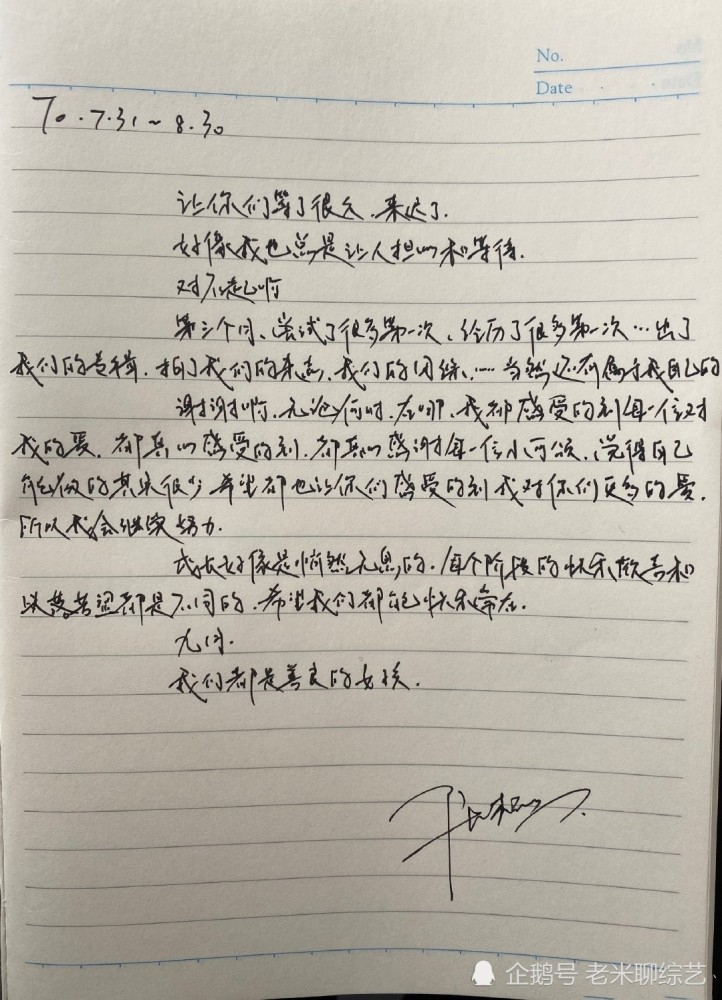 No.
Date
To. 7.31~8.30
让你们等了很久、来迟了.
好像我也总是让人担心和等待.
对不起啊
第三个月、尝试了很多第一次、经历了很多第一次…出了
我们的专辑、拍了我们的杂志、我们的团综、…当然还有属于我自己的
谢谢啊、无论何时、在哪、我都感受的到每一位对
我的爱、都真心感受的到、都真心感谢每一位小可颂、觉得自己
能做的其实很少、希望都也让你们感受的到我对你们更多的爱、
所以我会继续努力.
成长好像是悄然无息的、每个阶段的快乐欢喜和
失落苦涩都是不同的、希望我们都能快乐常在.
九月.
我们都是善良的女孩.
企鹅号 老米聊综艺